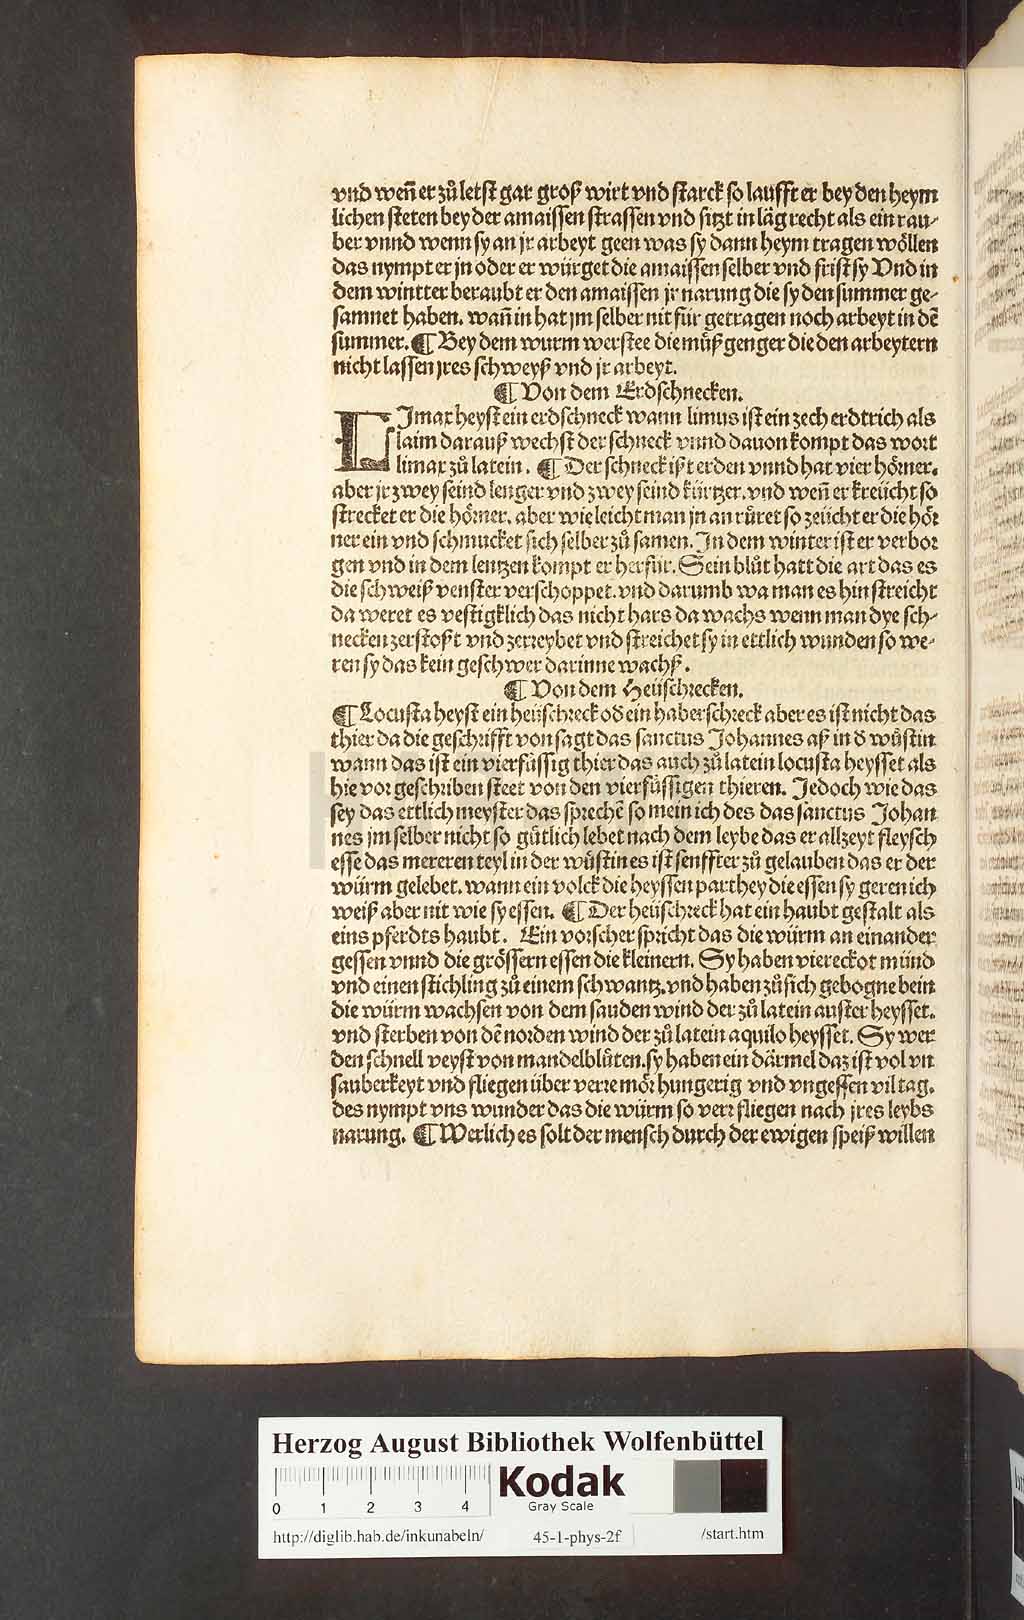 vnd weñ er zů letst gar groß wirt vnd starck so laufft er bey den heym
lichen steten bey der amaissen strassen vnd sitzt in läg recht als ein rau⸗
ber vnnd wenn sy an jr arbeyt geen was sy dann heym tragen wöllen
das nympt er jn oder er würget die amaissen selber vnd frist sy Vnd in
dem wintter beraubt er den amaissen jr narung die sy den summer ge⸗
samnet haben. wañ in hat jm selber nit für getragen noch arbeyt in dē
summer. ¶ Bey dem wurm werstee die müßgenger die den arbeytern
nicht lassen jres schweyß vnd jr arbeyt.
¶ Von dem Erdschnecken.
LJmax heyst ein erdschneck wann limus ist ein zech erdtrich als
laim darauß wechst der schneck vnnd dauon kompt das wort
limax zů latein. ¶ Der schneck ißt erden vnnd hat vier hörner.
aber jr zwey seind lenger vnd zwey seind kürtzer. vnd weñ er kreücht so
strecket er die hörner. aber wie leicht man jn an rüret so zeücht er die hör
ner ein vnd schmucket sich selber zů samen. In dem winter ist er verbor
gen vnd in dem lentzen kompt er herfür. Sein blůt hatt die art das es
die schweiß venster verschoppet. vnd darumb wa man es hin streicht
da weret es vestigklich das nicht hars da wachs wenn man dye sch⸗
necken zerstoßt vnd zerreybet vnd streichet sy in ettlich wunden so we⸗
ren sy das kein geschwer darinne wachß.
¶ Von dem Heüschrecken.
¶ Locusta heyst ein heüschreck oď ein haberschreck aber es ist nicht das
thier da die geschrifft von sagt das sanctus Johannes aß in ď wůstin
wann das ist ein vierfüssig thier das auch zů latein locusta heysset als
hie vor geschriben steet von den vierfüssigen thieren. Jedoch wie das
sey das ettlich meyster das sprechē so mein ich des das sanctus Johan
nes jm selber nicht so gütlich lebet nach dem leybe das er allzeyt fleysch
esse das mereren teyl in der wůstin es ist senffter zů gelauben das er der
würm gelebet. wann ein volck die heyssen parthey die essen sy geren ich
weiß aber nit wie sy essen. ¶ Der heüschreck hat ein haubt gestalt als
eins pferdts haubt. Ein vorscher spricht das die würm an einander
gessen vnnd die grössern essen die kleinern. Sy haben viereckot münd
vnd einen stichling zů einem schwantz. vnd haben zůsich gebogne bein
die würm wachsen von dem sauden wind der zů latein auster heysset.
vnd sterben von dē norden wind der zů latein aquilo heysset. Sy wer
den schnell veyst von mandelblůten. sy haben ein därmel daz ist vol vn
sauberkeyt vnd fliegen über verre mör hungerig vnd vngessen vil tag.
des nympt vns wunder das die würm so verr fliegen nach jres leybs
narung. ¶ Werlich es solt der mensch durch der ewigen speiß willen
Herzog August Bibliothek Wolfenbüttel
Kodak
0 1 2 3 4 Gray Scale
http://diglib.hab.de/inkunabeln/ 45-1-phys-2f /start.htm